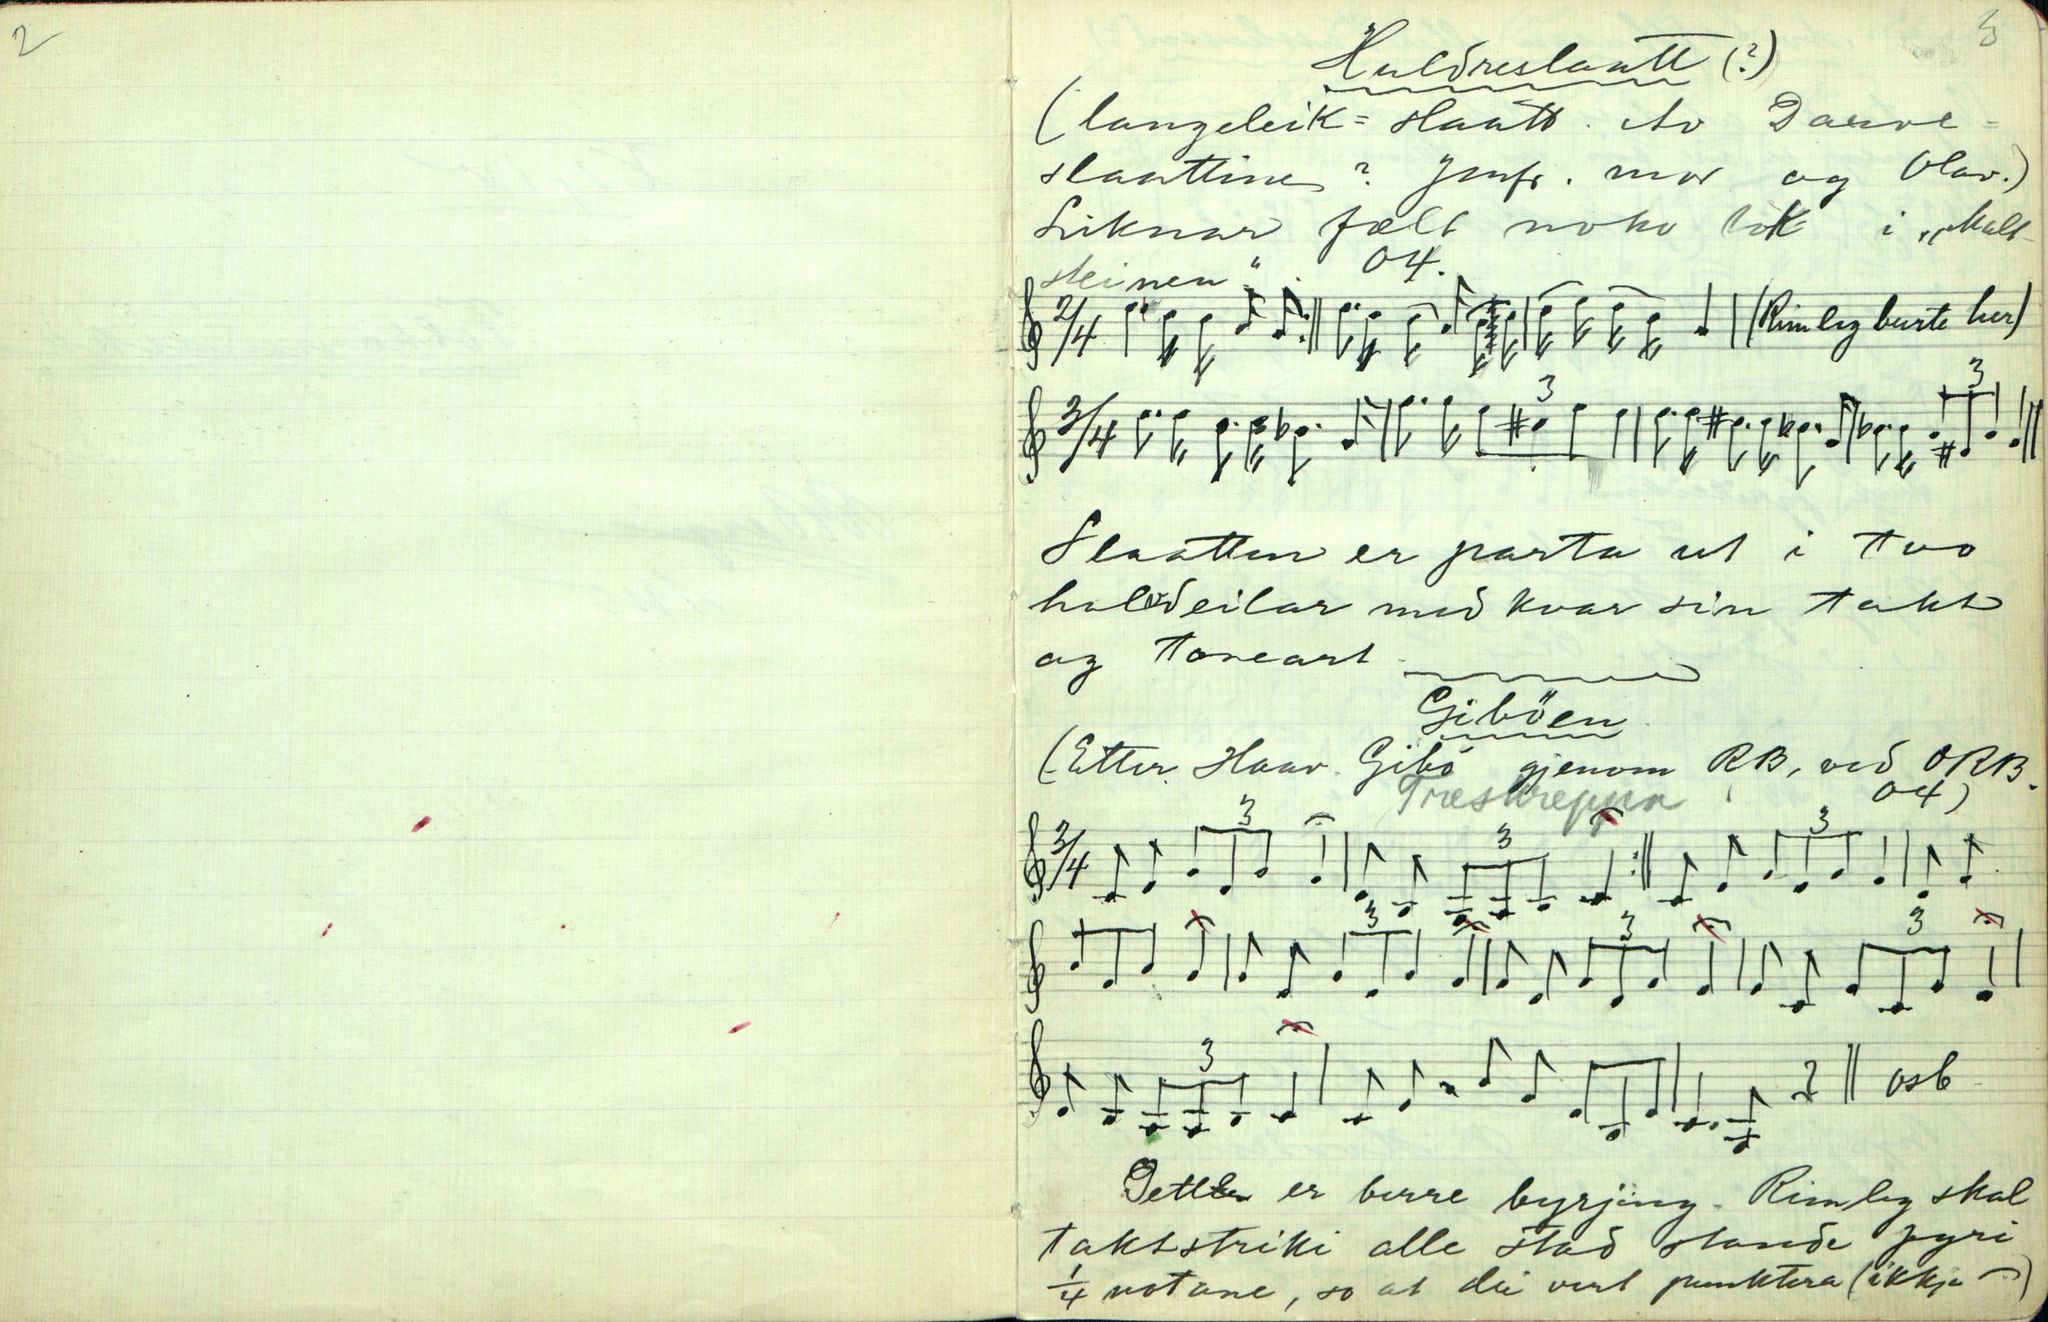 2
3
Huldreslaatt (?)
(langeleik = slaatt. Av Darve=
slaattine? Jmfr. mor og Olav.)
Liknar fælt noko låk i „Malt
steinen“. 04.
2/4 (Rimleg burte her)
3/4 3 3
Slaatten er parta ut i tvo
halvdeilar med kvar sin takt
og toneart
Giböen
(Etter Haav. Gibö gjenom RB, ved ORB.
Treskreppa 04)
3/4 3 3 3
3 3 3
3 osb
Dette er berre byrjing. Rimleg skal
taktstriki alle stad stande fyri
1/4 notane, so at dei vert punktera (ikkje 𝄐)